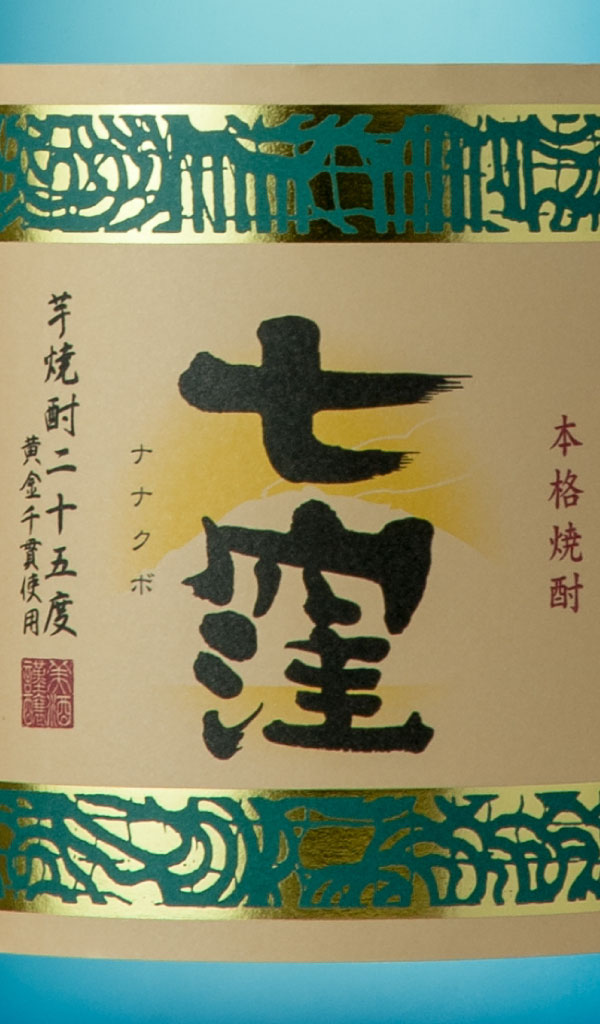 本格焼酎
七窪
ナナクボ
芋焼酎二十五度
黄金千貫使用
美酒
謹醸